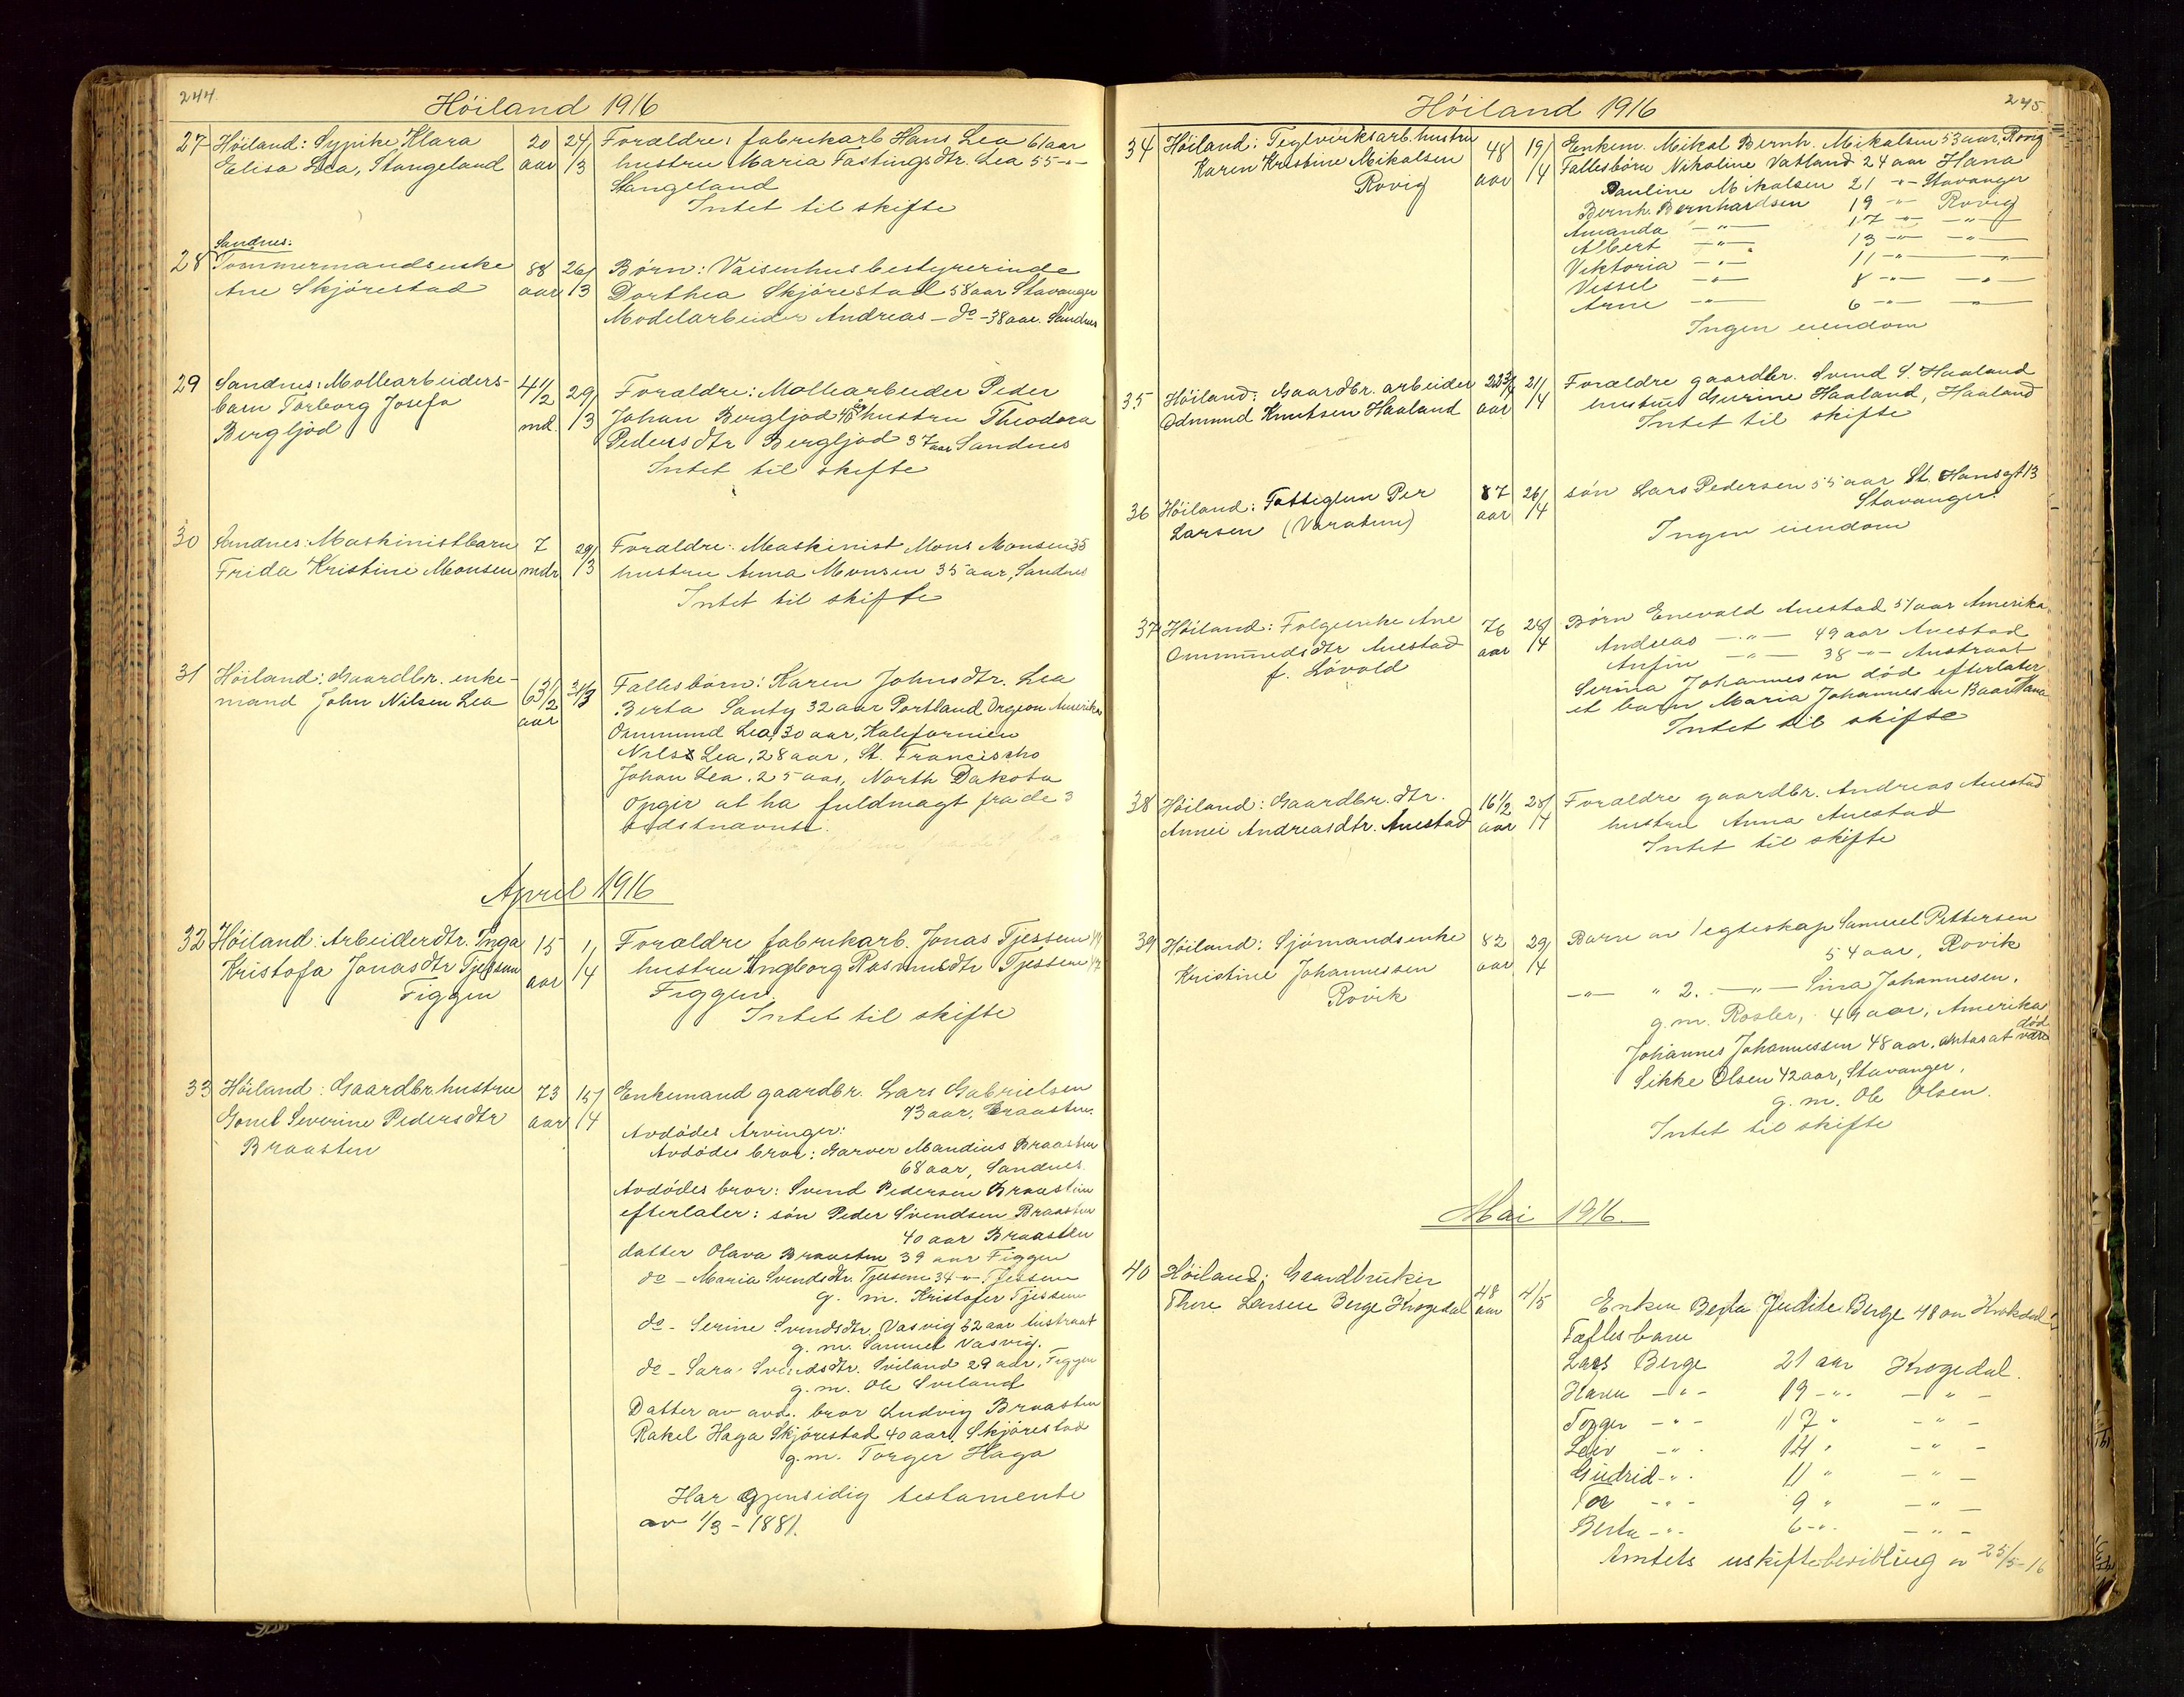 244.
Höiland 1916
27 Höiland: Sypike Klara 20 24/ Forældre: fabrikarb Hans Lea 61 aar
Elisa Lea, Stangeland aar /3 hustru Maria Fastings dtr. Lea 55 -"-
Stangeland
Intet til skifte
Sandnes:
28 Tømmermandsenke 88 26/ Børn: Vaisenhusbestyrerinde
Ane Skjörestad aar /3 Dorthea Skjörestad 58 aar Stavanger
Modelarbeider Andreas - do - 38 aar. Sandnes
29 Sandnes: Møllearbeiders- 4 1/2 29/ Forældre: Møllearbeider Peder
barn Torborg Josefa md. /3 Johan Bergljod 40 år hustru Theodora
Bergljod Peders dtr Bergljod 37 aar Sandnes
Intet til skifte
30 Sandnes: Maskinistbarn 7 29/ Forældre: Maskinist Mons Monsen 35
Frida Kristine Monsen mdr /3 hustru Anna Monsen 35 aar, Sandnes
Intet til skifte
31 Höiland: Gaardbr. enke- 63 1/2 31/3 Fællesbørn: Karen Johns dtr. Lea
mand John Nilsen Lea aar Berta Santy 32 aar Portland Orgeon Amerika
Ommund Lea, 30 aar, Kalifornien
Nils Lea, 28 aar, St. Francischo
Johan Lea, 25 aar, North Dakota
Opgir at ha fuldmagt fra de 3
sidstnævnte.
April 1916
32 Höiland: Arbeiderdtr. Inga 15 1/ Forældre fabrikarb. Jonas Tjessem
Kristofa Jonas dtr Tjessem aar /4 hustru Ingborg Rasmusdtr Tjessem
Figgen Figgen
Intet til skifte
33 Höiland: Gaardbr. hustru 73 15/ Enkemand gaardbr. Lars Gabrielsen
Gonel Severine Peders dtr aar /4 73 aar, Braasten
Braasten Avdødes Arvinger:
Avdødes bror: Garver Mandius Braasten
68 aar, Sandnes
Avdødes bror: Svend Pedersen Braasten
efterlater: søn Peder Svendsen Braasten
40 aar Braasten
datter Olava Braasten 39 aar Figgen
do - Maria Svendsdtr. Tjessem 34 -"- Tjessem
g. m. Kristofer Tjessem
do - Serine Svendsdtr. Vasvig 32 aar Austraat
g. m. Samuel Vasvig.
do - Sara Svendsdtr. Sviland 29 aar, Figgen
g. m. Ole Sviland
Datter av avd. bror Ludvig Braasten
Rakel Haga Skjörestad 40 aar, Skjörestad
g. m. Torger Haga
Har gjensidig testamente
av 1/3 - 1881.
245
Höiland 1916
34 Höiland: Teglverksarb. hustru 48 19/ Enkem. Mikal Bernh. Mikalsen 53 aar, Rovig
Karen Kristine Mikalsen aar /4 Fællesbørn Nikoline Vatland 24 aar Hana
Rovig Pauline Mikalsen 21 -"- Stavanger
Bernh. Bernhardsen 19 -"- Rovig
Amanda -"- 17 -"- -"-
Albert -"- 13 -"- -"-
Viktoria -"- 11 -"- -"-
Vessel -"- 8 -"- -"-
Arne -"- 6 -"- -"-
Ingen eiendom
35 Höiland: Gaardbr. arbeider 21/ Forældre gaardbr. Svend S. Haaland
Odmund Knutsen Haaland aar /4 hustru Gurine Haaland, Haaland
Intet til skifte
36 Höiland: Fattiglem Per 87 26/ søn Lars Pedersen 55 aar St. Hansgt 13
Larsen (Varatun) aar /4 Stavanger.
Ingen eiendom
37 Höiland: Følgeenke Ane 76 28/ Børn Enevald Auestad 51 aar Amerika
Ommundsdtr Auestad aar /4 Andreas -"- 49 aar Auestad
f. Lövold Anfin -"- 38 -"- Austraat
Serina Johannesen død efterlater
et barn Maria Johannesen 13 aar Hana
Intet til skifte
38 Höiland: Gaardbr. dtr. 16 1/2 28/ Forældre gaardbr. Andreas Auestad
Annei Andreasdtr. Auestad aar /4 hustru Anna Auestad
Intet til skifte
39 Höiland: Sjömandsenke 82 29/ Barn av 1 egteskap Samuel Pettersen
Kristine Johannessen aar /4 54 aar, Rovik
Rovik -"- " 2. -"- Sina Johannesen,
g. m. Rosler, 49 aar, Amerika
Johannes Johannessen 48 aar, antas at være død
Sikke Olsen 42 aar, Stavanger,
g. m. Ole Olsen.
Intet til skifte
Mai 1916.
40 Höiland: Gaardbruker 48 4/5 Enken Berta Judite Berge 48 aar Krokedal
Thore Larsen Berge Krogedal aar Fælles barn
Lars Berge 21 aar Krogedal.
Hanna -"- 19 -"- -"-
Torger -"- 17 " -"-
Leiv -"- 14 " -"-
Gudrid -"- 11 " -"-
Tor -"- 9 " -"-
Berta -"- 6 -"- -"-
Amtets uskiftebevilling av 25/5-16